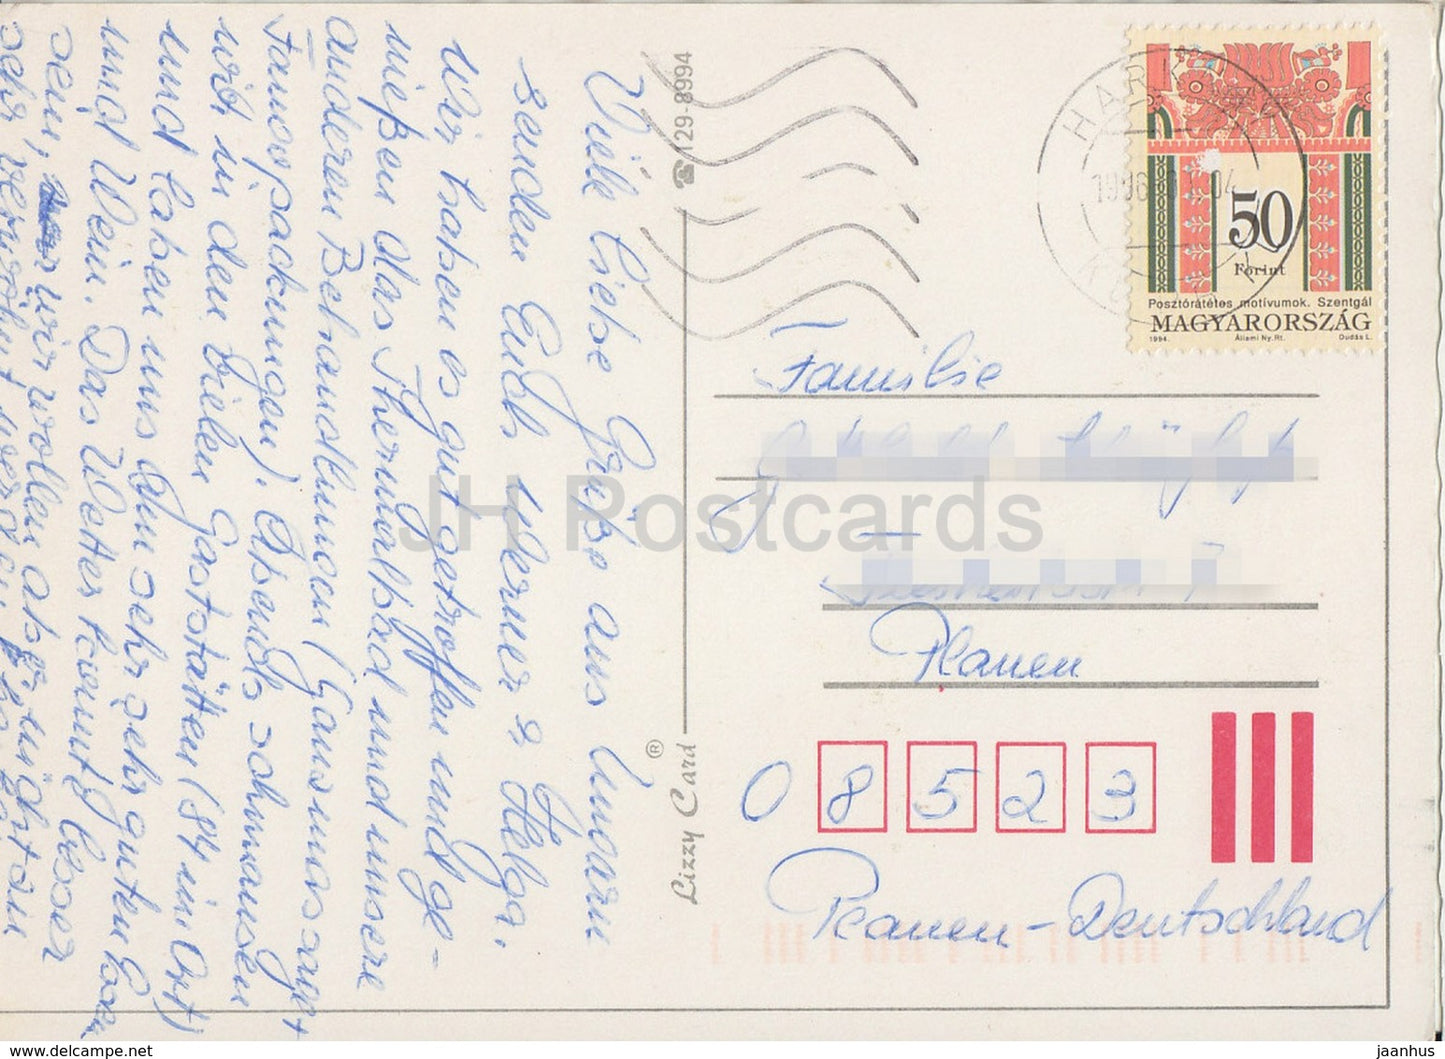 Viele liebe Grüße aus Ungarn
senden Euch Werner & Helga.
Wir haben es gut getroffen und ge-
nießen das Thermalbad und unsere
anderen Behandlungen (Ganzmassage +
Fangopackungen). Abends schmausen
wir in den vielen Gaststätten (84 im Ort)
und laben uns am sehr sehr guten Essen
und Wein. Das Wetter könnte besser
sein, wir wollen aber nicht zu
sehr verwöhnt werden.
129-8994
Lizzy Card ®
HARK
1996 04
50
Forint
Posztórátétes motívumok. Szentgál
MAGYARORSZÁG
1994. Állami Ny. Rt. Dudás L.
Familie
Plauen
0 8 5 2 3
Plauen - Deutschland
JH Postcards
www.delcampe.net
jaanhus